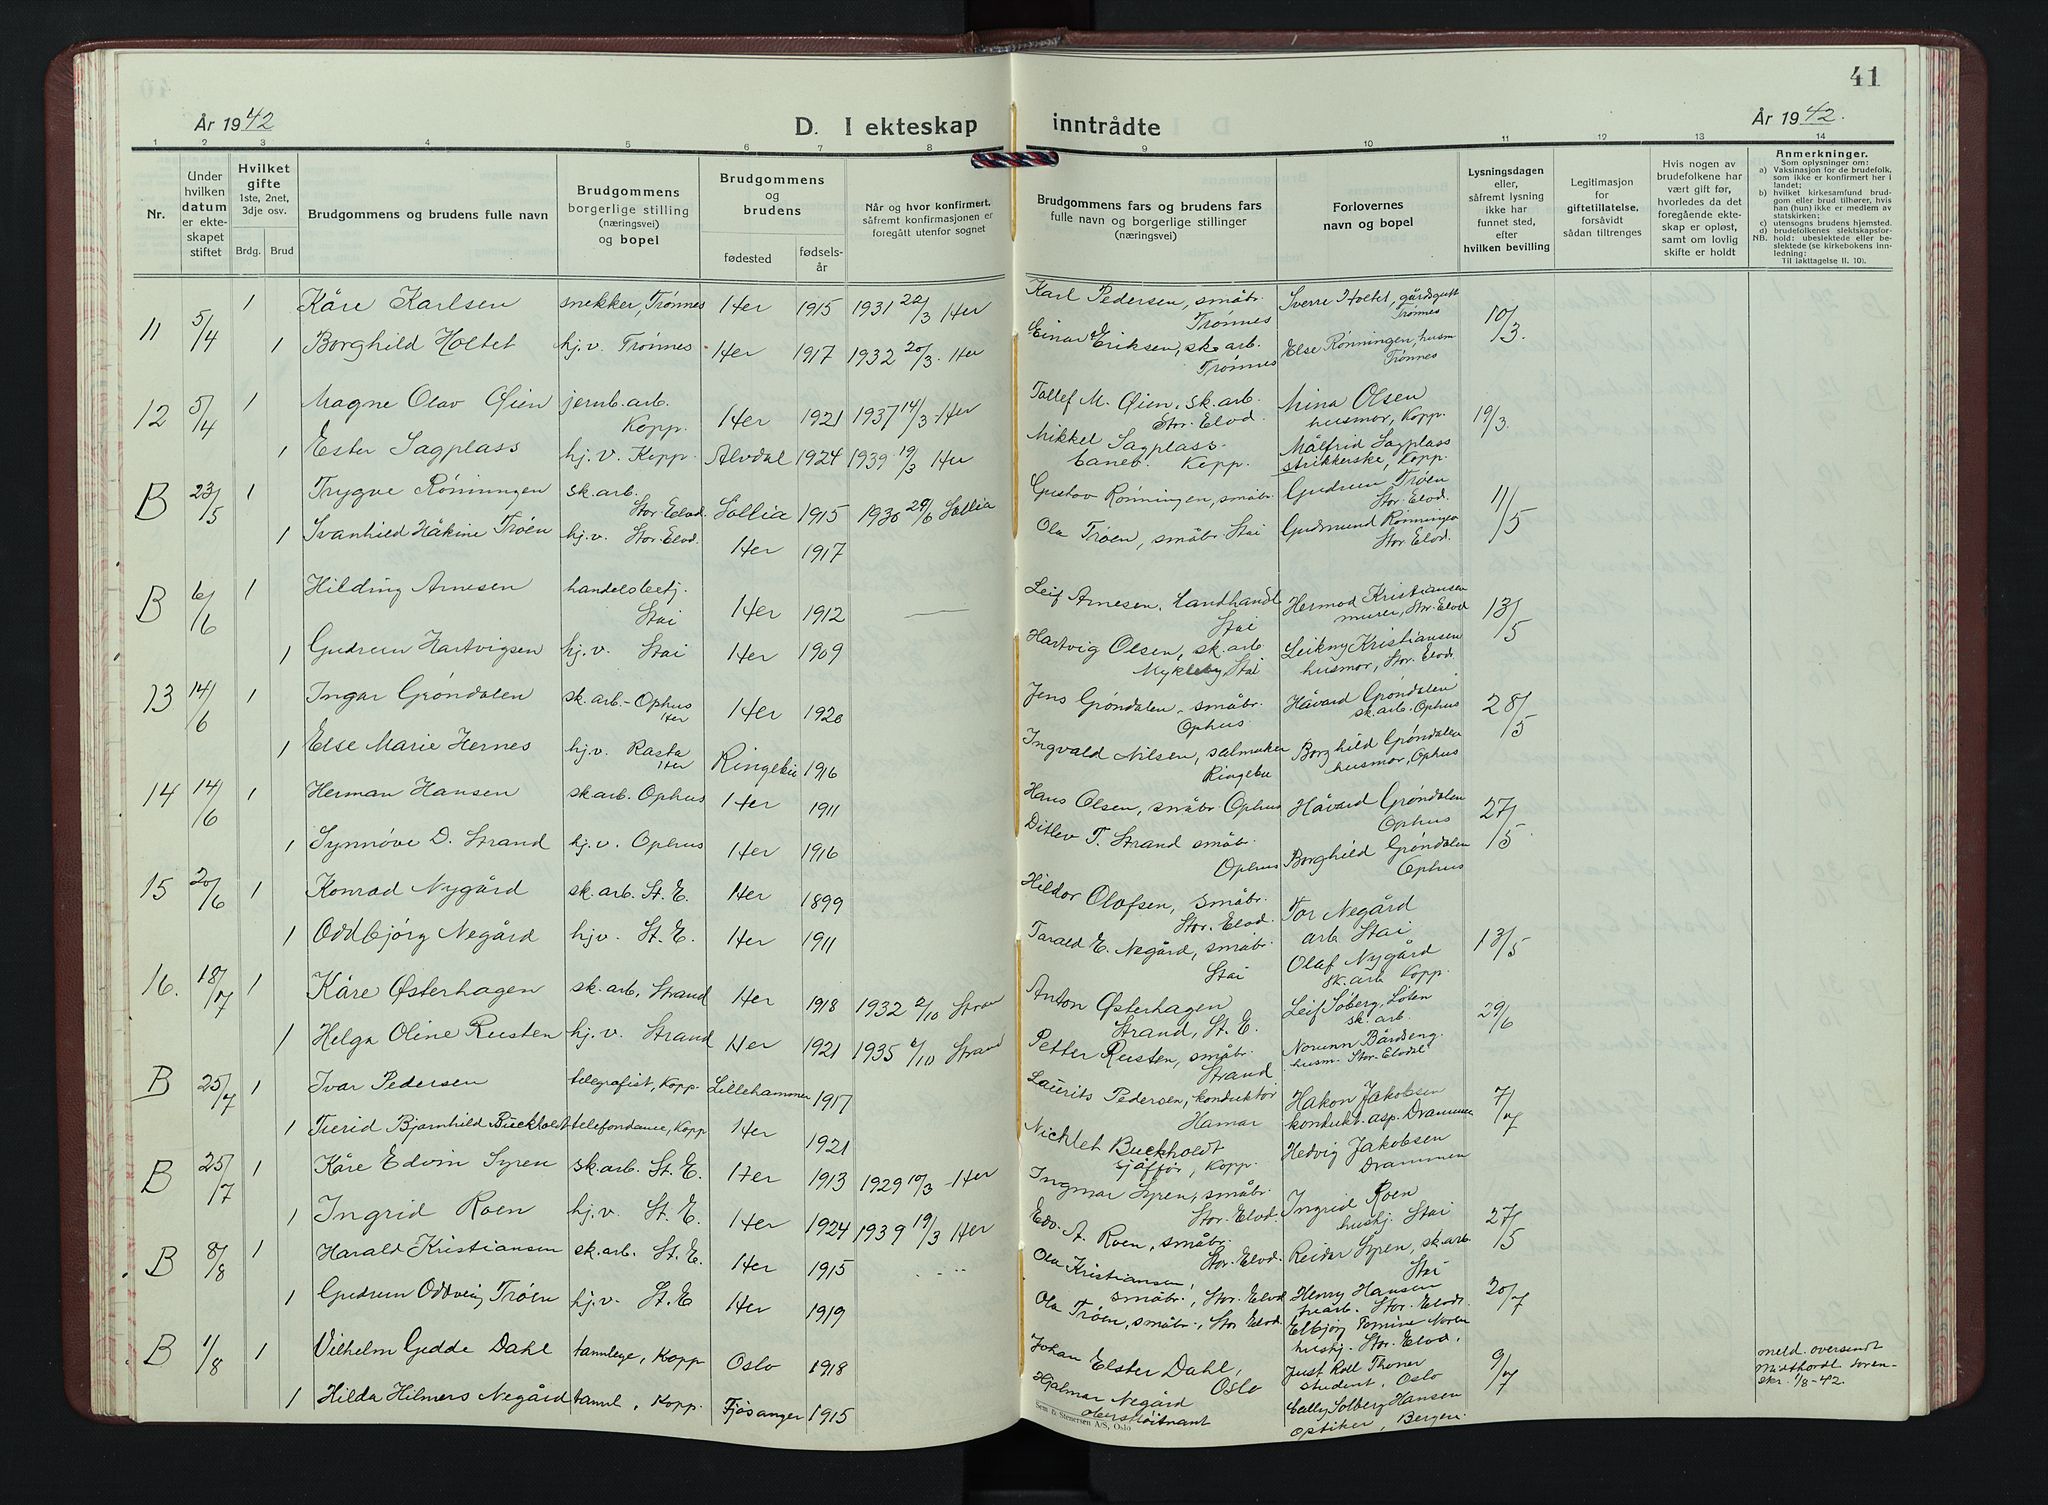 41
År 1942
D. I ekteskap inntrådte
År 1942.
1 2 3 4 5 6 7 8 9 10 11 12 13 14
Nr.
Under hvilken datum er ekteskapet stiftet
Hvilket gifte 1ste, 2net, 3dje osv.
Brdg. Brud
Brudgommens og brudens fulle navn
Brudgommens borgerlige stilling (næringsvei) og bopel
Brudgommens og brudens
fødested
fødselsår
Når og hvor konfirmert, såfremt konfirmasjonen er foregått utenfor sognet
Brudgommens fars og brudens fars fulle navn og borgerlige stillinger (næringsvei)
Forlovernes navn og bopel
Lysningsdagen eller, såfremt lysning ikke har funnet sted, efter hvilken bevilling
Legitimasjon for giftetillatelse, forsåvidt sådan tiltrenges
Hvis nogen av brudefolkene har vært gift før, hvorledes da det foregående ekteskap er opløst, samt om lovlig skifte er holdt
Anmerkninger.
Som oplysninger om:
a) Vaksinasjon for de brudefolk, som ikke er konfirmert her i landet;
b) hvilket kirkesamfund brudgom eller brud tilhører, hvis han (hun) ikke er medlem av statskirken;
c) utensogns brudens hjemsted.
d) brudefolkenes slektskapsforhold: ubeslektede eller beslektede (se kirkebokens innledning:
NB. Til iakttagelse II. 10).
11 5/4 1 Kåre Karlsen snekker, Trønnes Her 1915 1931 22/3 Her Karl Pedersen, småbr. Trønnes Sverre Holtet, gårdsgutt Trønnes 10/3.
1 Borghild Holtet hj.v. Trønnes Her 1917 1932 20/3. Her Einar Eriksen, sk.arb. Trønnes Else Rønningen, husm Trønnes
12 5/4 1 Magne Olav Øien jernb.arb. Kopp. Her 1921 1937 14/3 Her Tollef M. Øien, sk.arb. Stor-Elvd. Mina Olsen husmor, Kopp. 19/3.
1 Ester Sagplass hj.v. Kopp. Alvdal 1924 1939 19/3 Her Mikkel Sagplass baneb. Kopp. Målfrid Sagplass strikkerske, Kopp.
B 23/5 1 Trygve Rønningen sk.arb. Stor-Elvd. Sollia 1915 1930 29/6 Sollia Gustav Rønningen, småbr. Gudrun Trøen Stor-Elvd. 11/5
1 Svanhild Håkine Trøen hj.v. Stor-Elvd. Her 1917 Ola Trøen, småbr. Stai Gudmund Rønningen Stor Elvd.
B 6/6 1 Hilding Arnesen handelsbetj. Stai Her 1912 — Leif Arnesen, Landhandl Stai Hermod Kristiansen murer, Stor-Elvd 13/5
1 Gudrun Hartvigsen hj.v. Stai Her 1909 Hartvig Olsen, sk.arb. Mykleby Stai Leikny Kristiansen husmor, Stor-Elvd.
13 14/6 1 Ingar Grøndalen sk.arb. - Ophus Her Her 1920 Jens Grøndalen, småbr. Ophus Håvard Grøndalen sk.arb. Ophus 28/5
1 Else Marie Hernes hj.v. Rasta Her Ringebu 1916 Ingvald Nilsen, salmaker Ringebu Borghild Grøndalen husmor, Ophus
14 14/6 1 Herman Hansen sk.arb. Ophus Her 1911 Hans Olsen, småbr. Ophus Håvard Grøndalen Ophus 27/5
1 Synnøve D. Strand hj.v. Ophus Her 1916 Ditlev T. Strand småbr. Ophus Borghild Grøndalen Ophus
15 20/6 1 Konrad Nygård sk.arb. St. E. Her 1899 Hildor Olofsen, småbr. Stor. Elvd. Tor Negård arb Stai 13/5
1 Oddbjørg Negård hj.v. St. E. Her 1911 Tarald E. Negård, småbr. Stai Olaf Nygård sk.arb Kopp.
16. 18/7 1 Kåre Østerhagen sk.arb, Strand Her 1918 1932 2/10 Strand Anton Østerhagen Strand, St. E. Leif Søberg, Løten sk.arb. 29/6
1 Helga Oline Rusten hj.v. Strand Her 1921 1935 6/10 Strand Petter Rusten, småbr. Strand Norunn Bårdseng. husm. Stor-Elvdal
B 25/7 1 Ivar Pedersen telegrafist, Kopp. Lillehammer 1917 Laurits Pedersen, konduktør Hamar Håkon Jakobsen kondukt.asp. Drammen 7/7
1 Turid Bjørnhild Buckholdt telefondame, Kopp Her 1921 Nichlet Buckholdt sjåffør, Kopp. Hedvig Jakobsen Drammen
B 25/7 1 Kåre Edvin Syren sk.arb. St. E. Her 1913 1929 10/3 Her Ingmar Syren, småbr. Stor. Elvd. Ingrid Roen hushj. Stai 27/5
1 Ingrid Roen hj.v. St. E. Her 1924 1939 19/3 Her Edv. A. Roen, småbr. Stor-Elvd. Reidar Syren, sk.arb Stai
B 8/8 1 Harald Kristiansen sk.arb. St. E. Her 1915 Ola Kristiansen, småbr., Stor-Elvd Henry Hansen Stor. Elvd. 20/7
1 Gudrun Oddveig Trøen hj.v. St. E Her 1919 Ola Trøen, småbr., Stor Elvd. Elbjørg hushj. Stor. Elvd.
B 1/8 1 Vilhelm Gedde Dahl tannlege, Kopp Oslo 1918 Johan Elster Dahl, Oslo Just Roll Thoner student, Oslo 9/7 meld. oversendt Midthordl. Soren- skr. 1/8-42.
1 Hilda Hilmers Negård tannl, Kopp. Fjøsanger 1915 Hjalmar Negård oberstløitnant Cally Solberg Hansen optiker, Bergen.
Sem & Stenersen A/S, Oslo